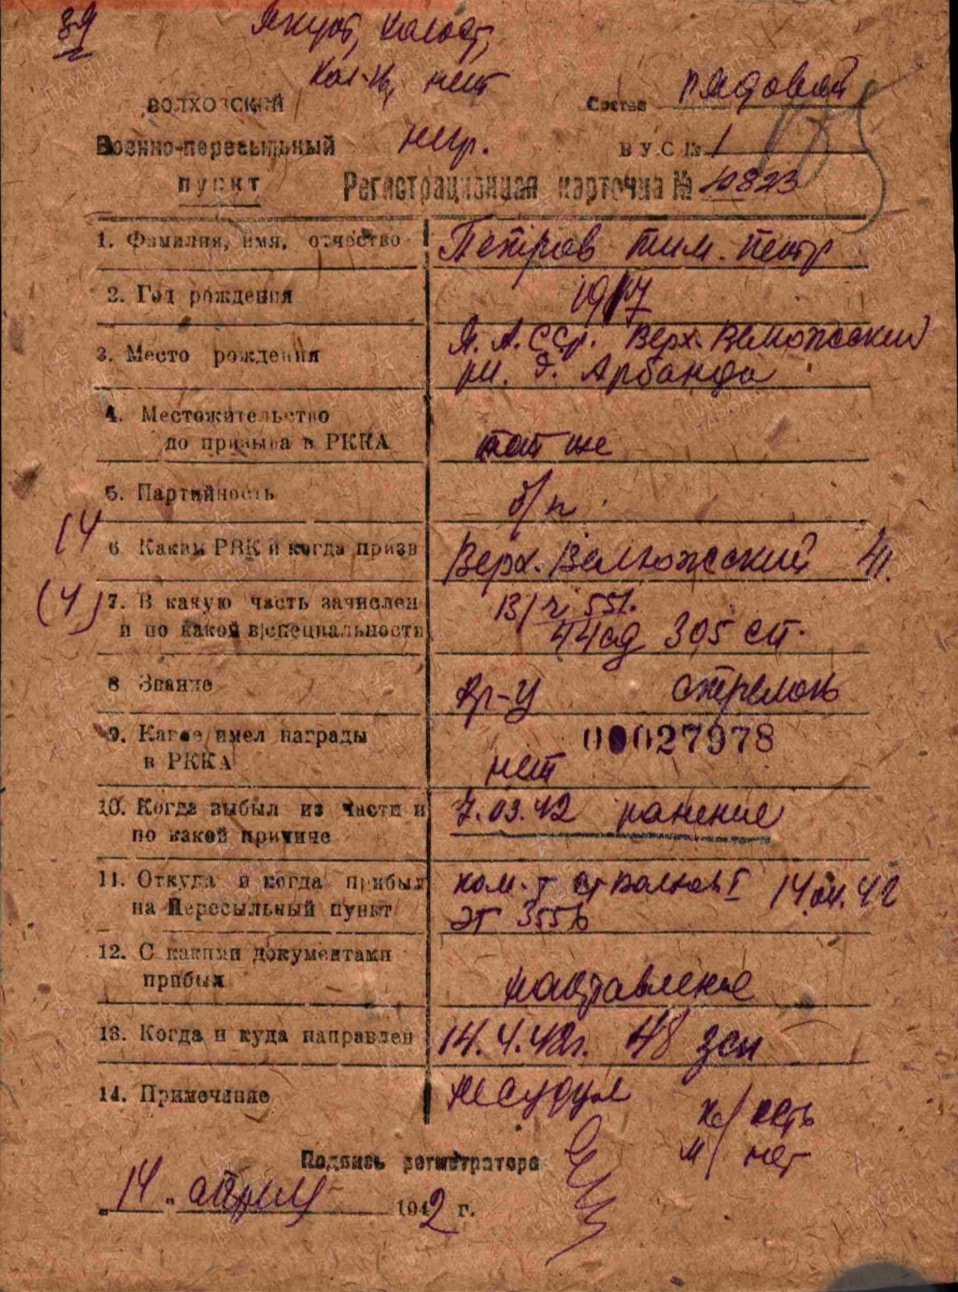 39
Якут, холост,
нет
ВОЛХОВСКИЙ
Состав рядовой
Военно-пересыльный
негр.
ВУС № 1
пункт
Регистрационная карточка № 10823
1. Фамилия, имя, отчество Петров Тим. Петр
2. Год рождения 1917
3. Место рождения Я.А.ССр. Верх. Велюжсский
рн. д. Арбанда
4. Местожительство
до призыва в РККА там же
5. Партийность б/п
14
6 Каким РВК и когда призв Верх. Велюжсский 41.
(4)
7. В какую часть зачислен
и по какой в|специальности
44сд 305 сп.
8 Звание кр-ц стрелок
9. Какие имел награды
в РККА нет
00027978
10. Когда выбыл из части и
по какой причине 7.03.42 ранение
11. Откуда и когда прибыл
на Пересыльный пункт
14.04.42
ЭГ 3556
12. С какими документами
прибыл направление
13. Когда и куда направлен 14.4.42г. 48 зсп
14. Примечание не судим
х/ есть
м/ нет
Подпись регистратора
„14„ апреля 1942 г.